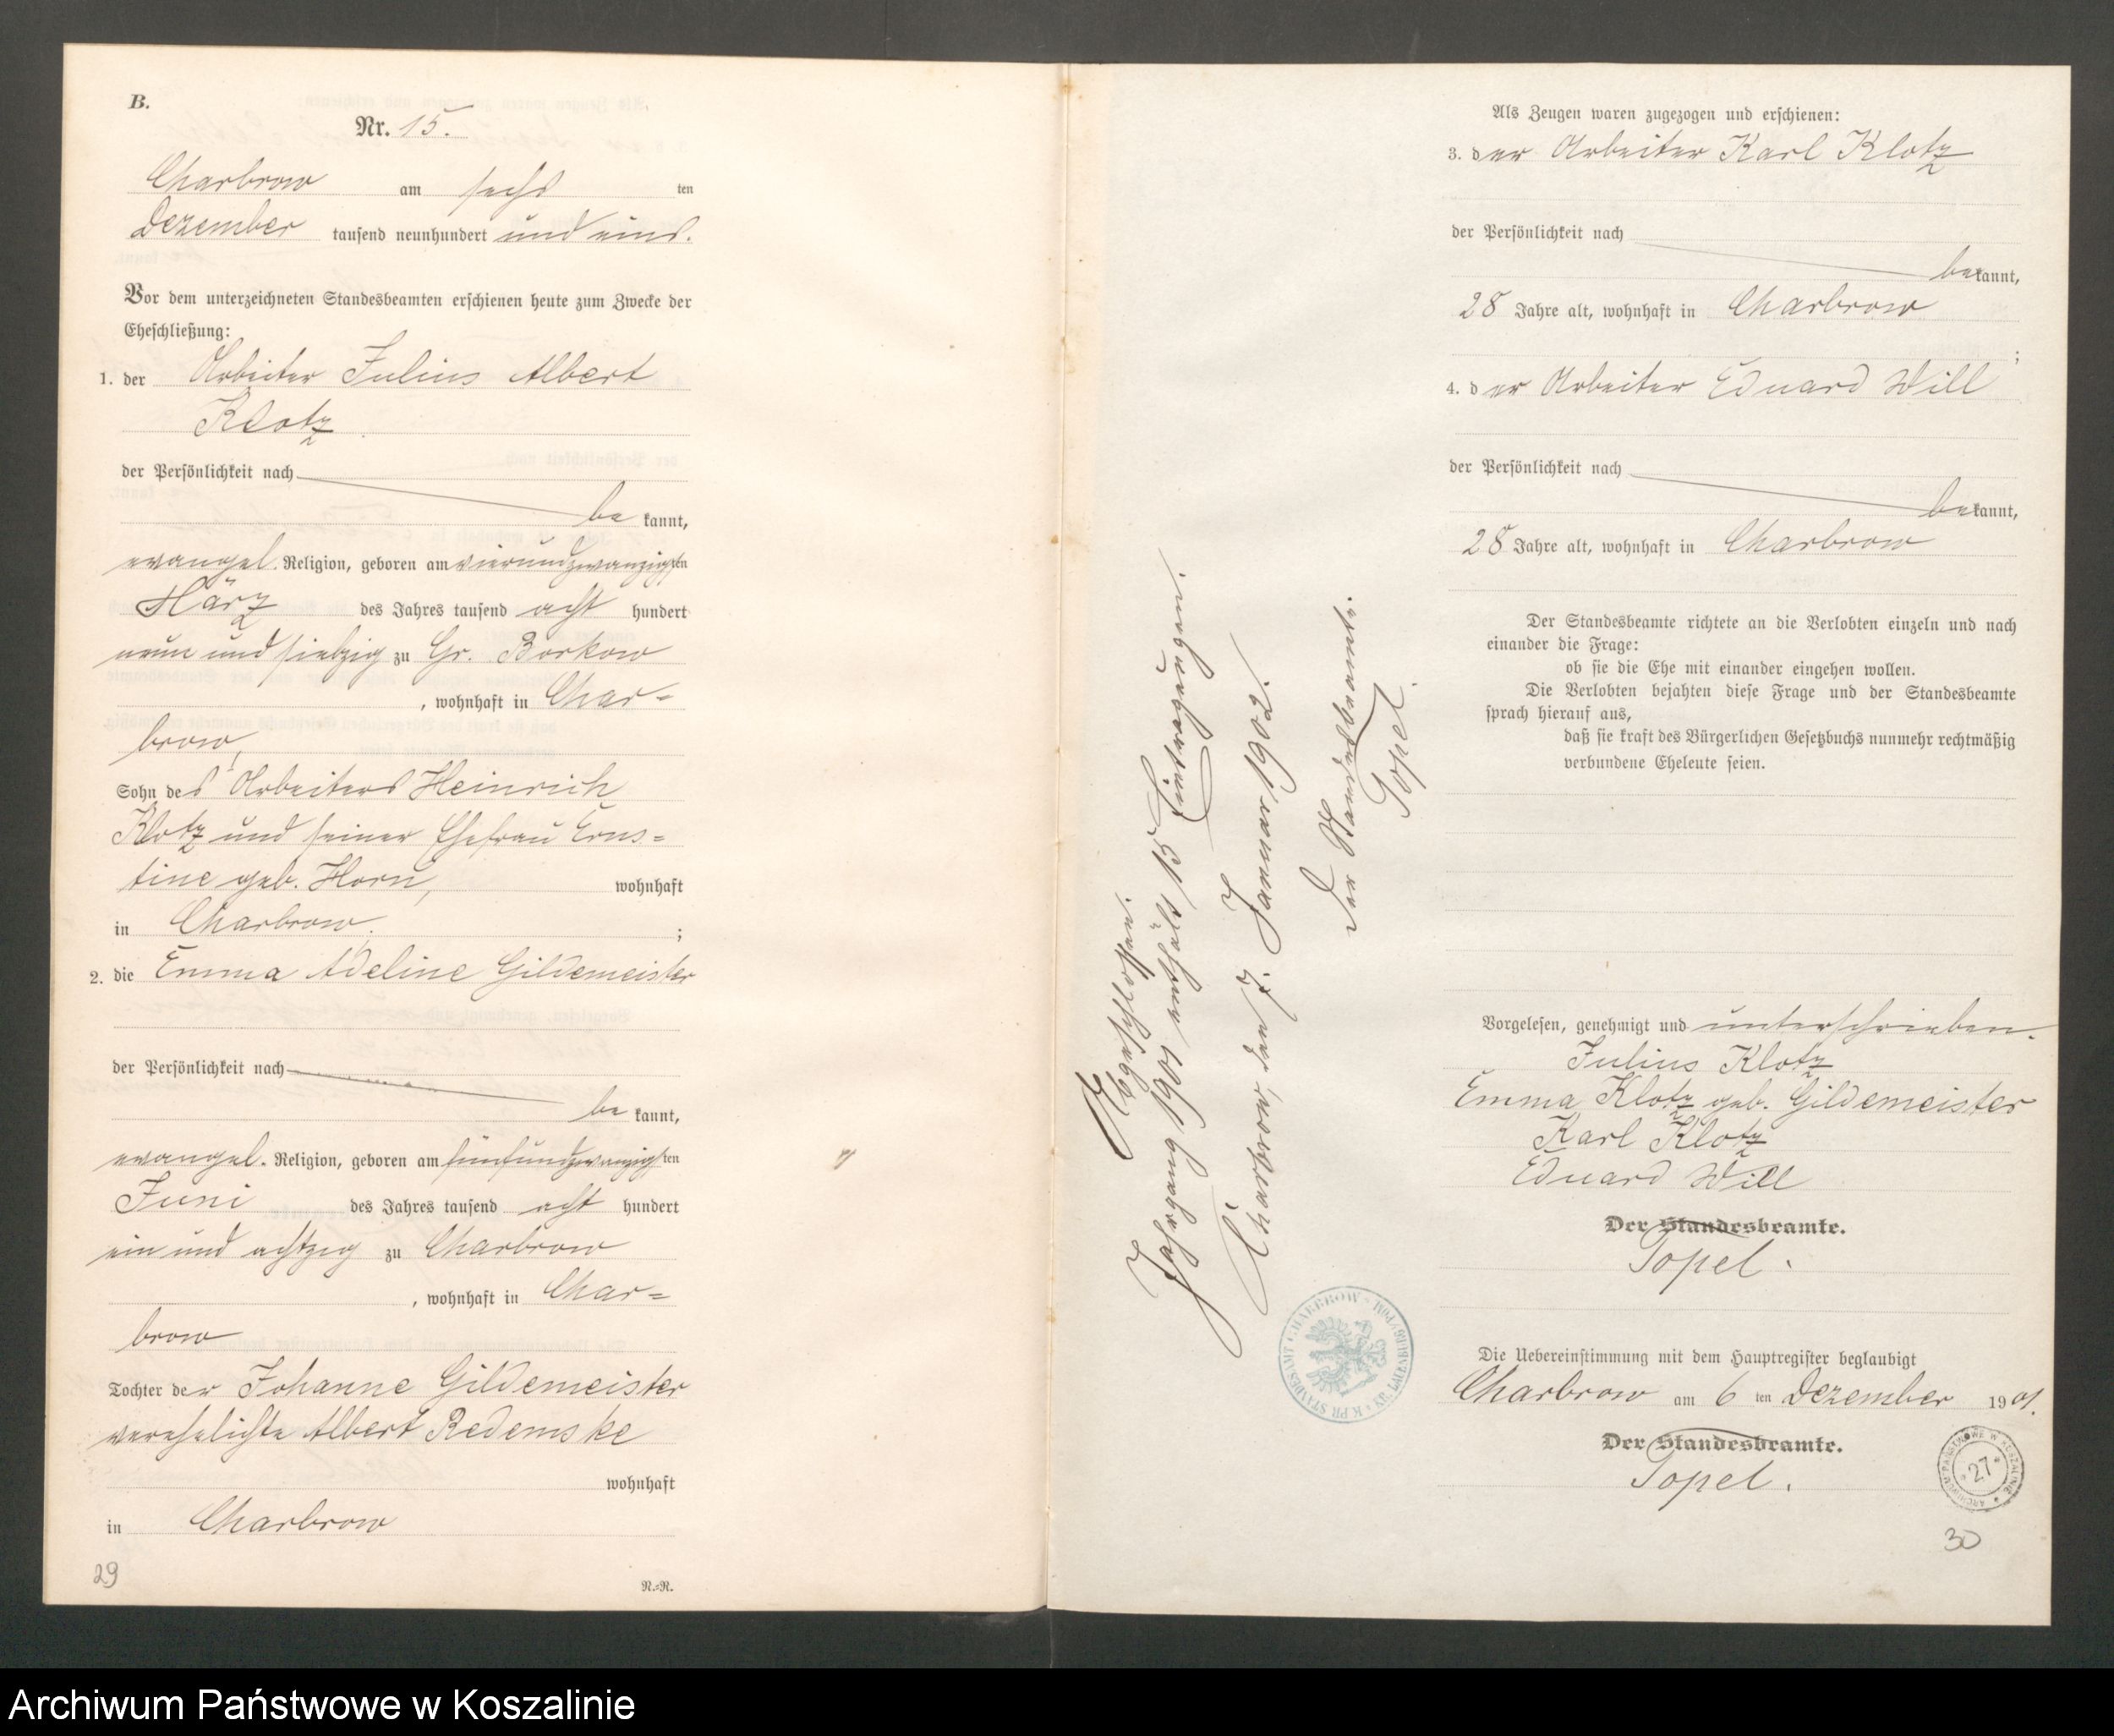 B.
Nr. 15.
Charbrow am sechs ten
Dezember tausend neunhundert und eins.
Vor dem unterzeichneten Standesbeamten erschienen heute zum Zwecke der
Eheschließung:
1. der Arbeiter Julius Albert
Klotz
der Persönlichkeit nach
be kannt,
evangel. Religion, geboren am vierundzwanzigsten
März des Jahres tausend acht hundert
neun und siebzig zu Gr. Borkow
, wohnhaft in Char=
brow,
Sohn des Arbeiters Heinrich
Klotz und seiner Ehefrau Erns=
tine geb. Horn, wohnhaft
in Charbrow. ;
2. die Emma Adeline Gildemeister
der Persönlichkeit nach
be kannt,
evangel. Religion, geboren am fünfundzwanzigsten
Juni des Jahres tausend acht hundert
ein und achtzig zu Charbrow
, wohnhaft in Char=
brow
Tochter der Johanne Gildemeister
verehelichte Albert Redemske
wohnhaft
in Charbrow
29
N.=R.
Abgeschlossen.
Jahrgang 1901 enthält 15 Eintragungen.
Charbrow, den 7. Januar 1902.
Der Standesbeamte.
Topel.
K. PR. STANDESAMT CHARBROW KR. LAUENBURG/POM.
Als Zeugen waren zugezogen und erschienen:
3. der Arbeiter Karl Klotz
der Persönlichkeit nach
bekannt,
28 Jahre alt, wohnhaft in Charbrow
;
4. der Arbeiter Eduard Will
der Persönlichkeit nach
bekannt,
28 Jahre alt, wohnhaft in Charbrow
Der Standesbeamte richtete an die Verlobten einzeln und nach
einander die Frage:
ob sie die Ehe mit einander eingehen wollen.
Die Verlobten bejahten diese Frage und der Standesbeamte
sprach hierauf aus,
daß sie kraft des Bürgerlichen Gesetzbuchs nunmehr rechtmäßig
verbundene Eheleute seien.
Vorgelesen, genehmigt und unterschrieben.
Julius Klotz
Emma Klotz geb. Gildemeister
Karl Klotz
Eduard Will
Der Standesbeamte.
Topel.
Die Uebereinstimmung mit dem Hauptregister beglaubigt
Charbrow am 6 ten Dezember 1901.
Der Standesbeamte.
Topel.
ARCHIWUM PAŃSTWOWE W KOSZALINIE
27
30
Archiwum Państwowe w Koszalinie